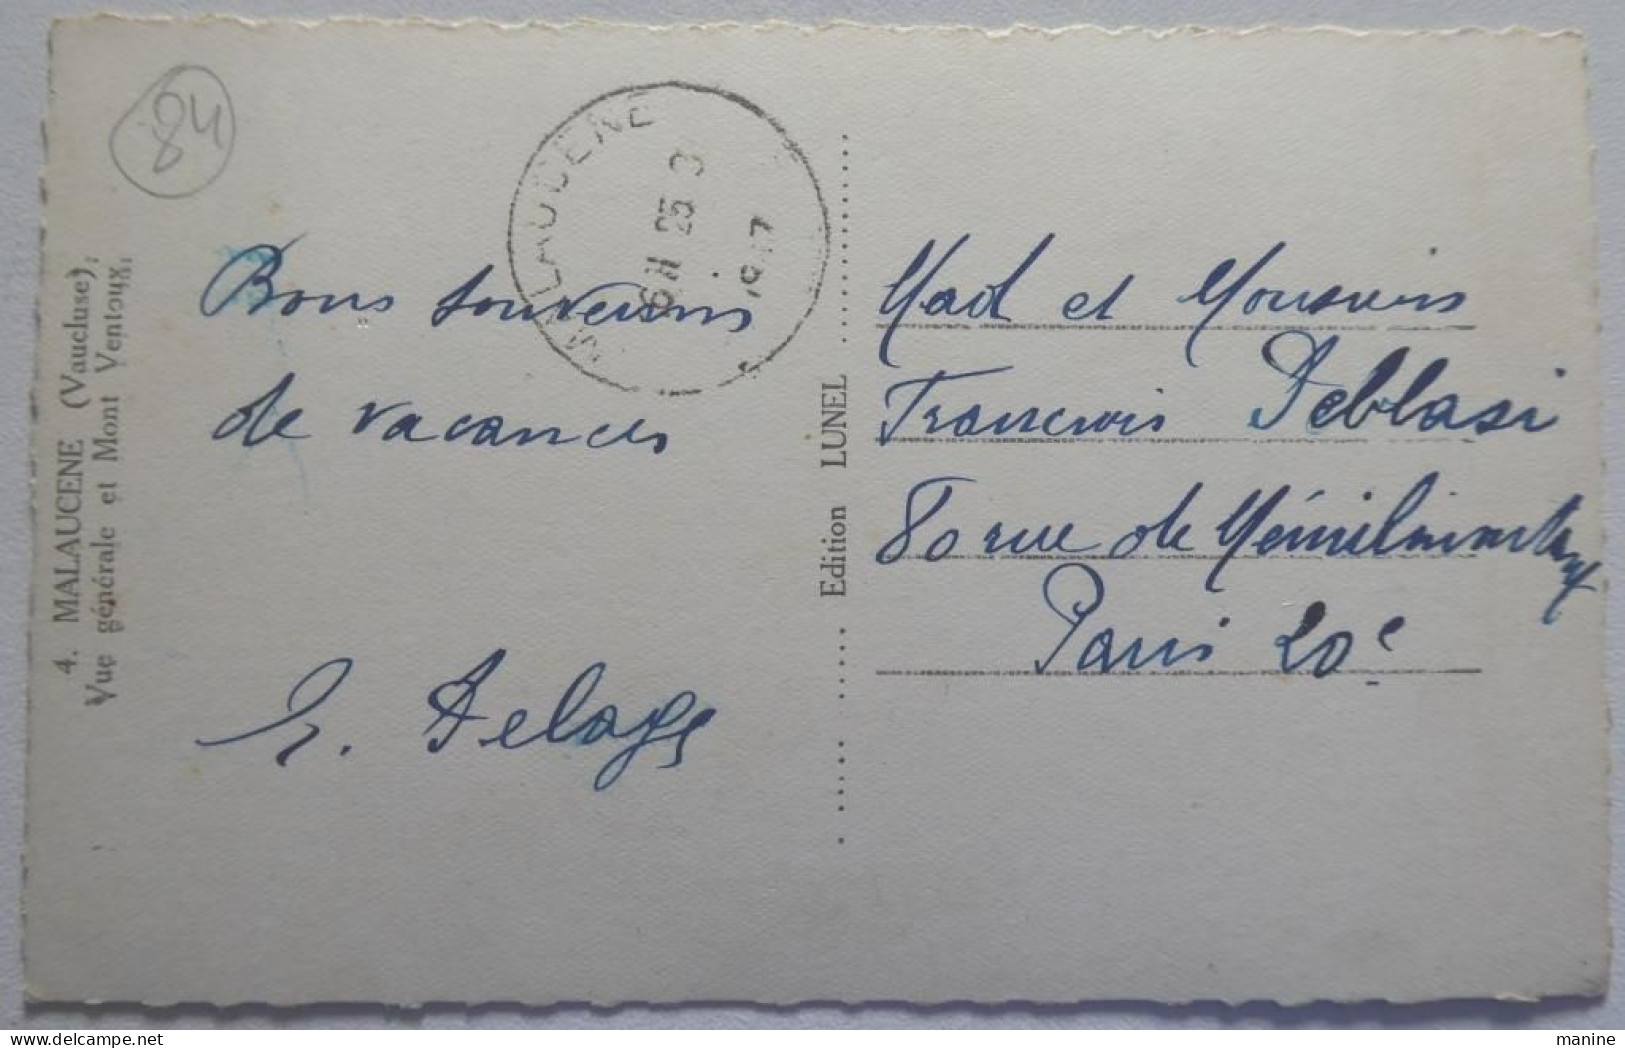 84
4. MALAUCENE (Vaucluse).
Vue générale et Mont Ventoux.
MALAUCENE
25 3
Bons souvenirs
de vacances
Delage
Edition LUNEL
Mad et Monsieur
Francois Deblasi
80 rue de Ménilmontant
Paris 20e
manine